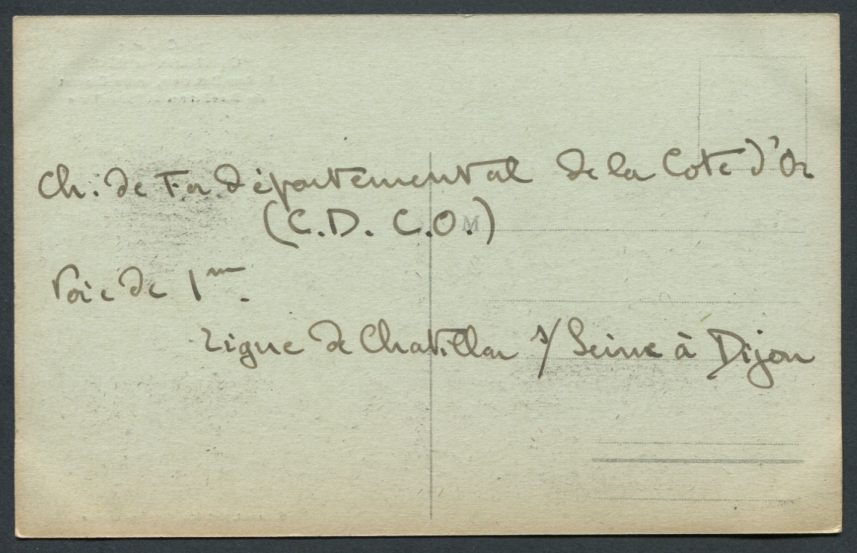 Ch. de Fer départemental de la Cote d'Or
(C.D. C.O.)
M
Voie de 1m.
Ligne de Chatillon s/ Seine à Dijon